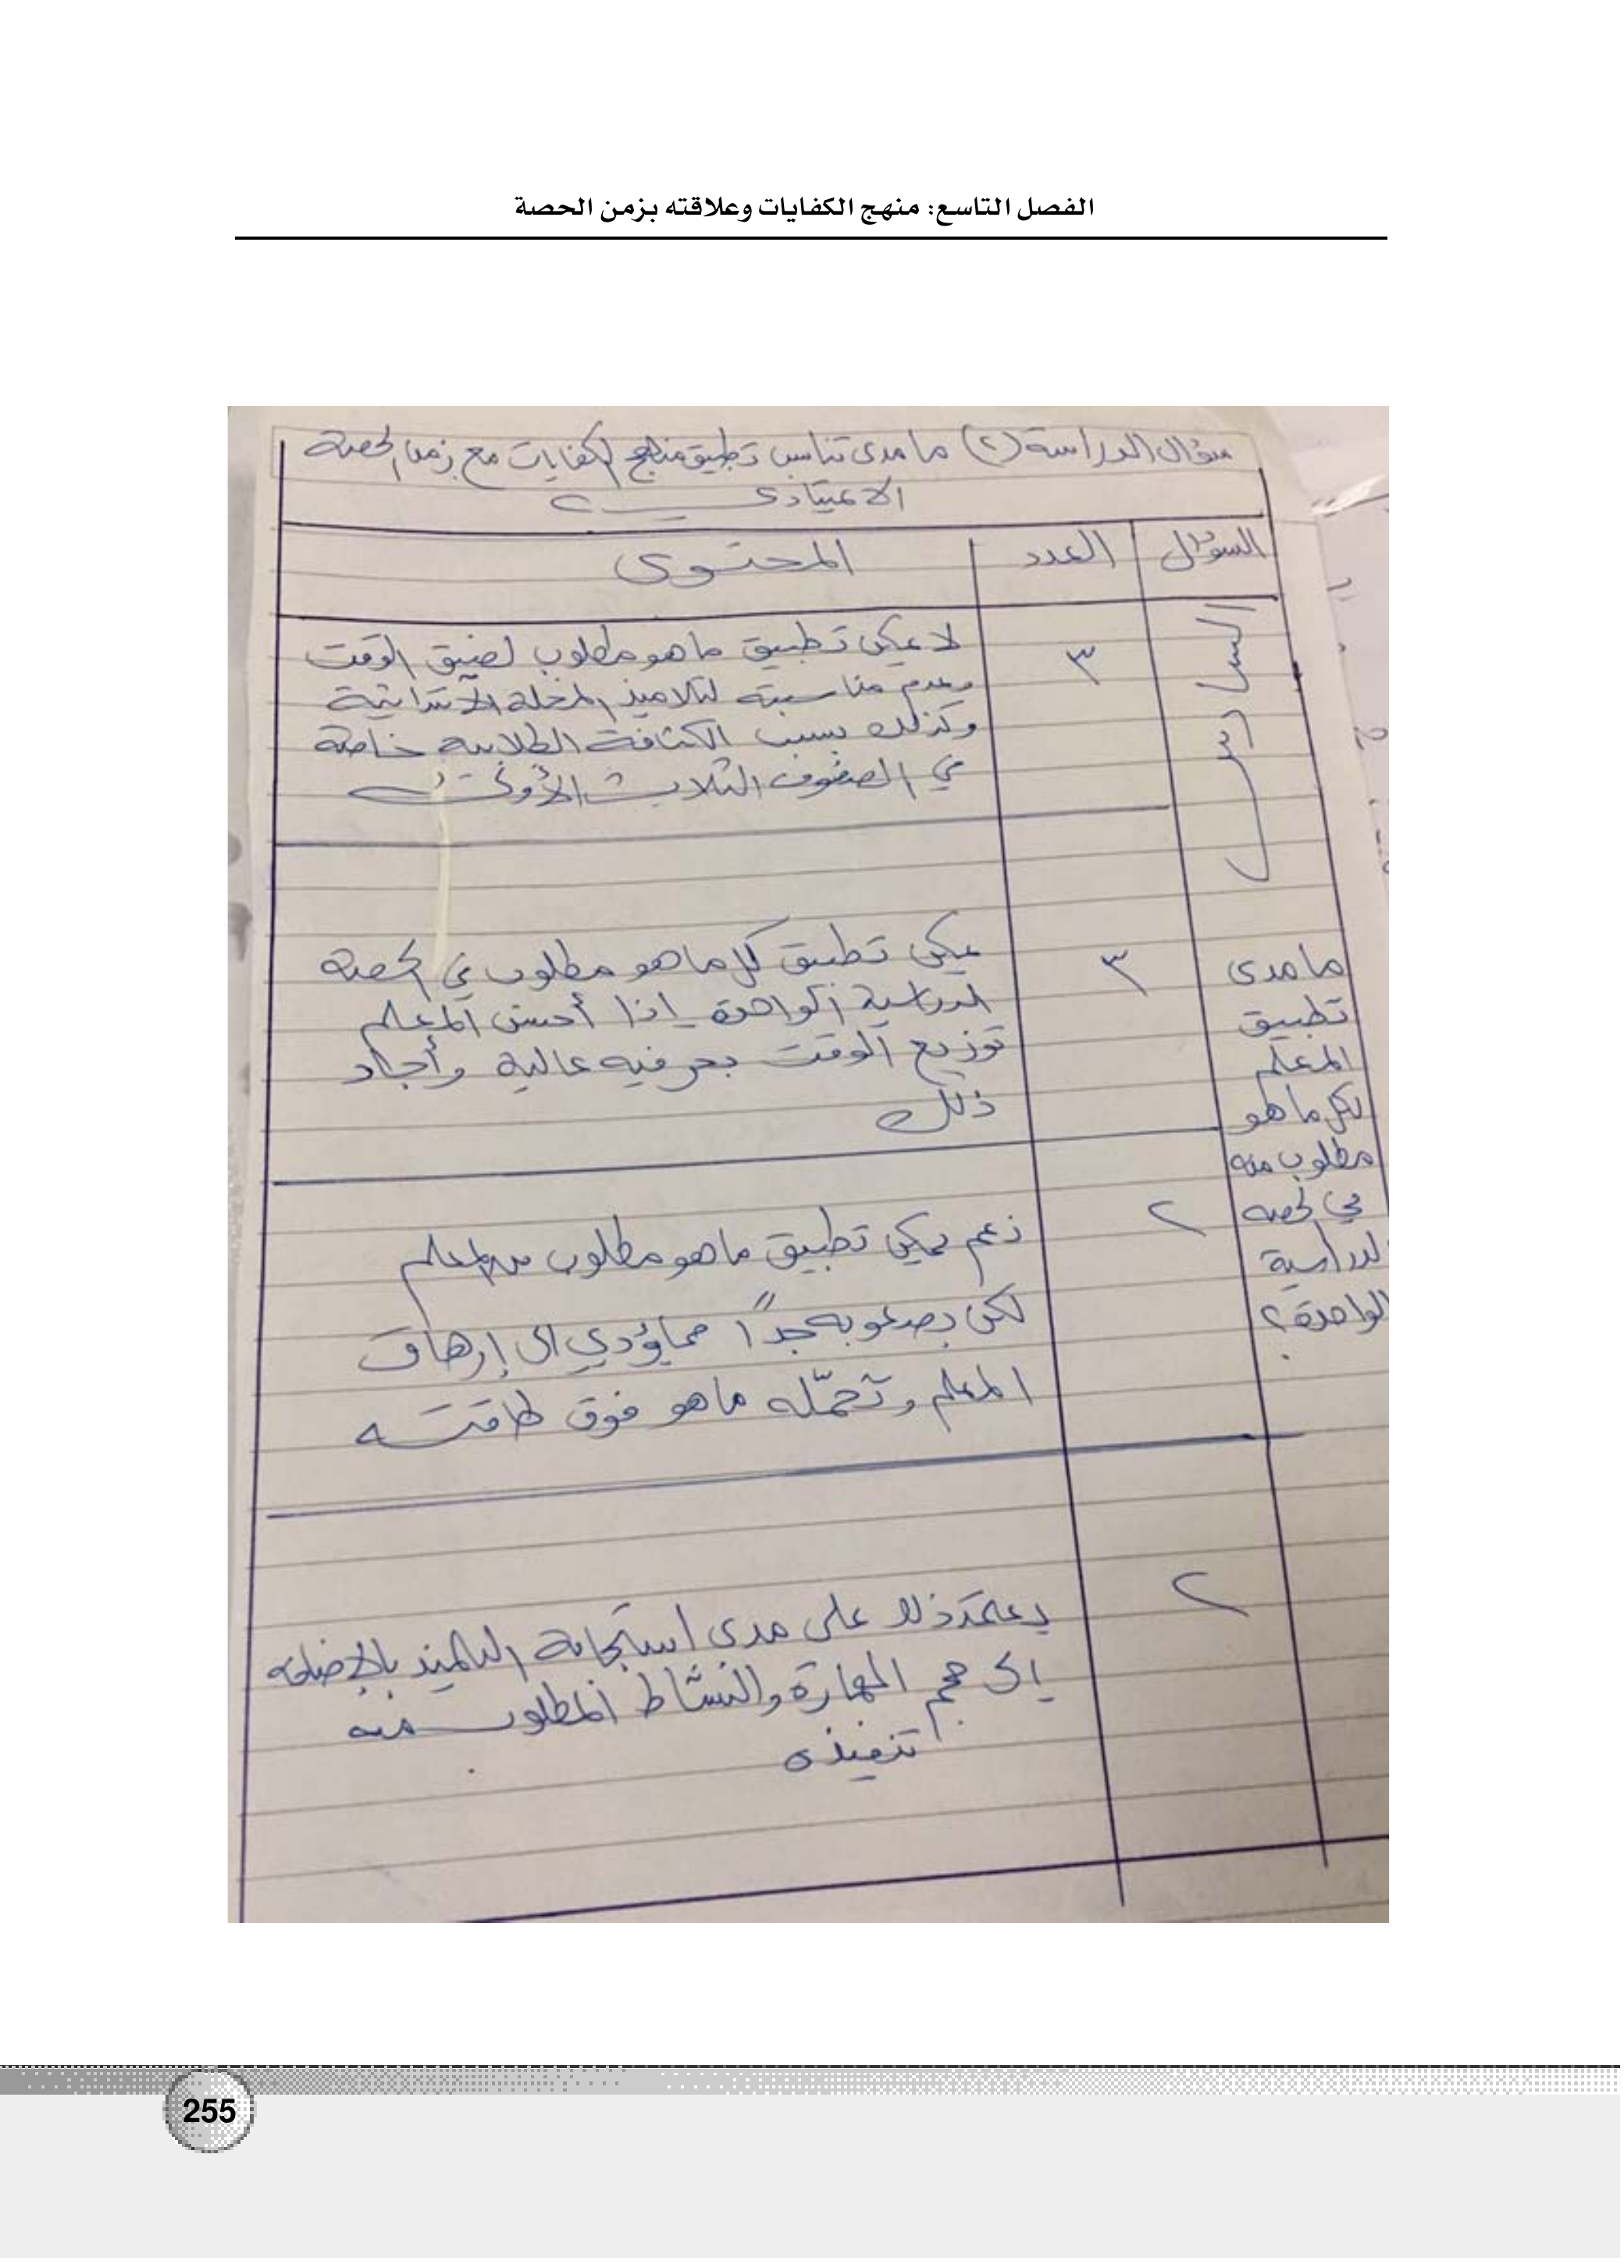 الفصل التاسع: منهج الكفايات وعلاقته بزمن الحصة
سؤال الدراسة (٢) ما مدى تناسب تطبيق منهج الكفايات مع زمن الحصة
الاعتيادي ؟
السؤال
العدد
المحتوى
السادس
٣
لا يمكن تطبيق ما هو مطلوب لضيق الوقت
وعدم مناسبته لتلاميذ المرحلة الابتدائية
وكذلك بسبب الكثافة الطلابية خاصة
في الصفوف الثلاث الأولى
ما مدى
تطبيق
المعلم
لكل ما هو
مطلوب منه
في الحصه
الدراسية
الواحدة ؟
٣
يمكن تطبيق كل ما هو مطلوب في الحصه
الدراسية الواحدة إذا أحسن المعلم
توزيع الوقت بحرفيه عالية وأجاد
ذلك
٢
نعم يمكن تطبيق ما هو مطلوب من المعلم
لكن بصعوبه جداً مما يؤدي الى إرهاق
المعلم وتحمّله ما هو فوق طاقته
٢
يعتمد ذلك على مدى استجابة التلميذ بالإضافه
إلى حجم المهارة والنشاط المطلوب منه
تنفيذه
255